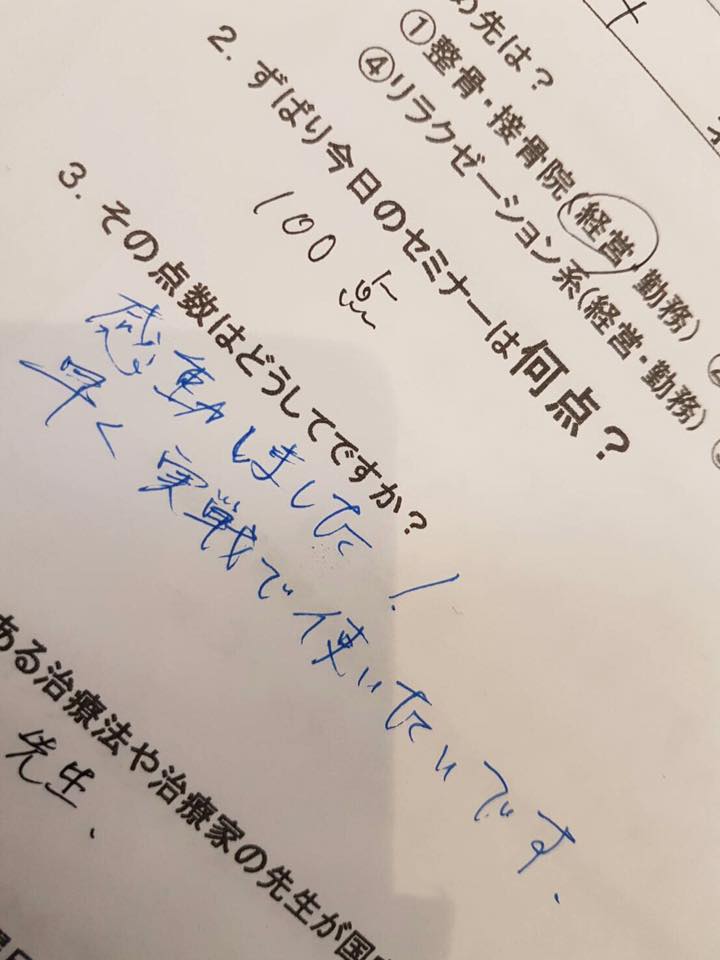 の先は？
①整骨・接骨院(経営・勤務)
④リラクゼーション系(経営・勤務)
2. ずばり今日のセミナーは何点？
100点
3. その点数はどうしてですか？
感動しました！
早く実戦で使いたいです.
ある治療法や治療家の先生が国
先生、